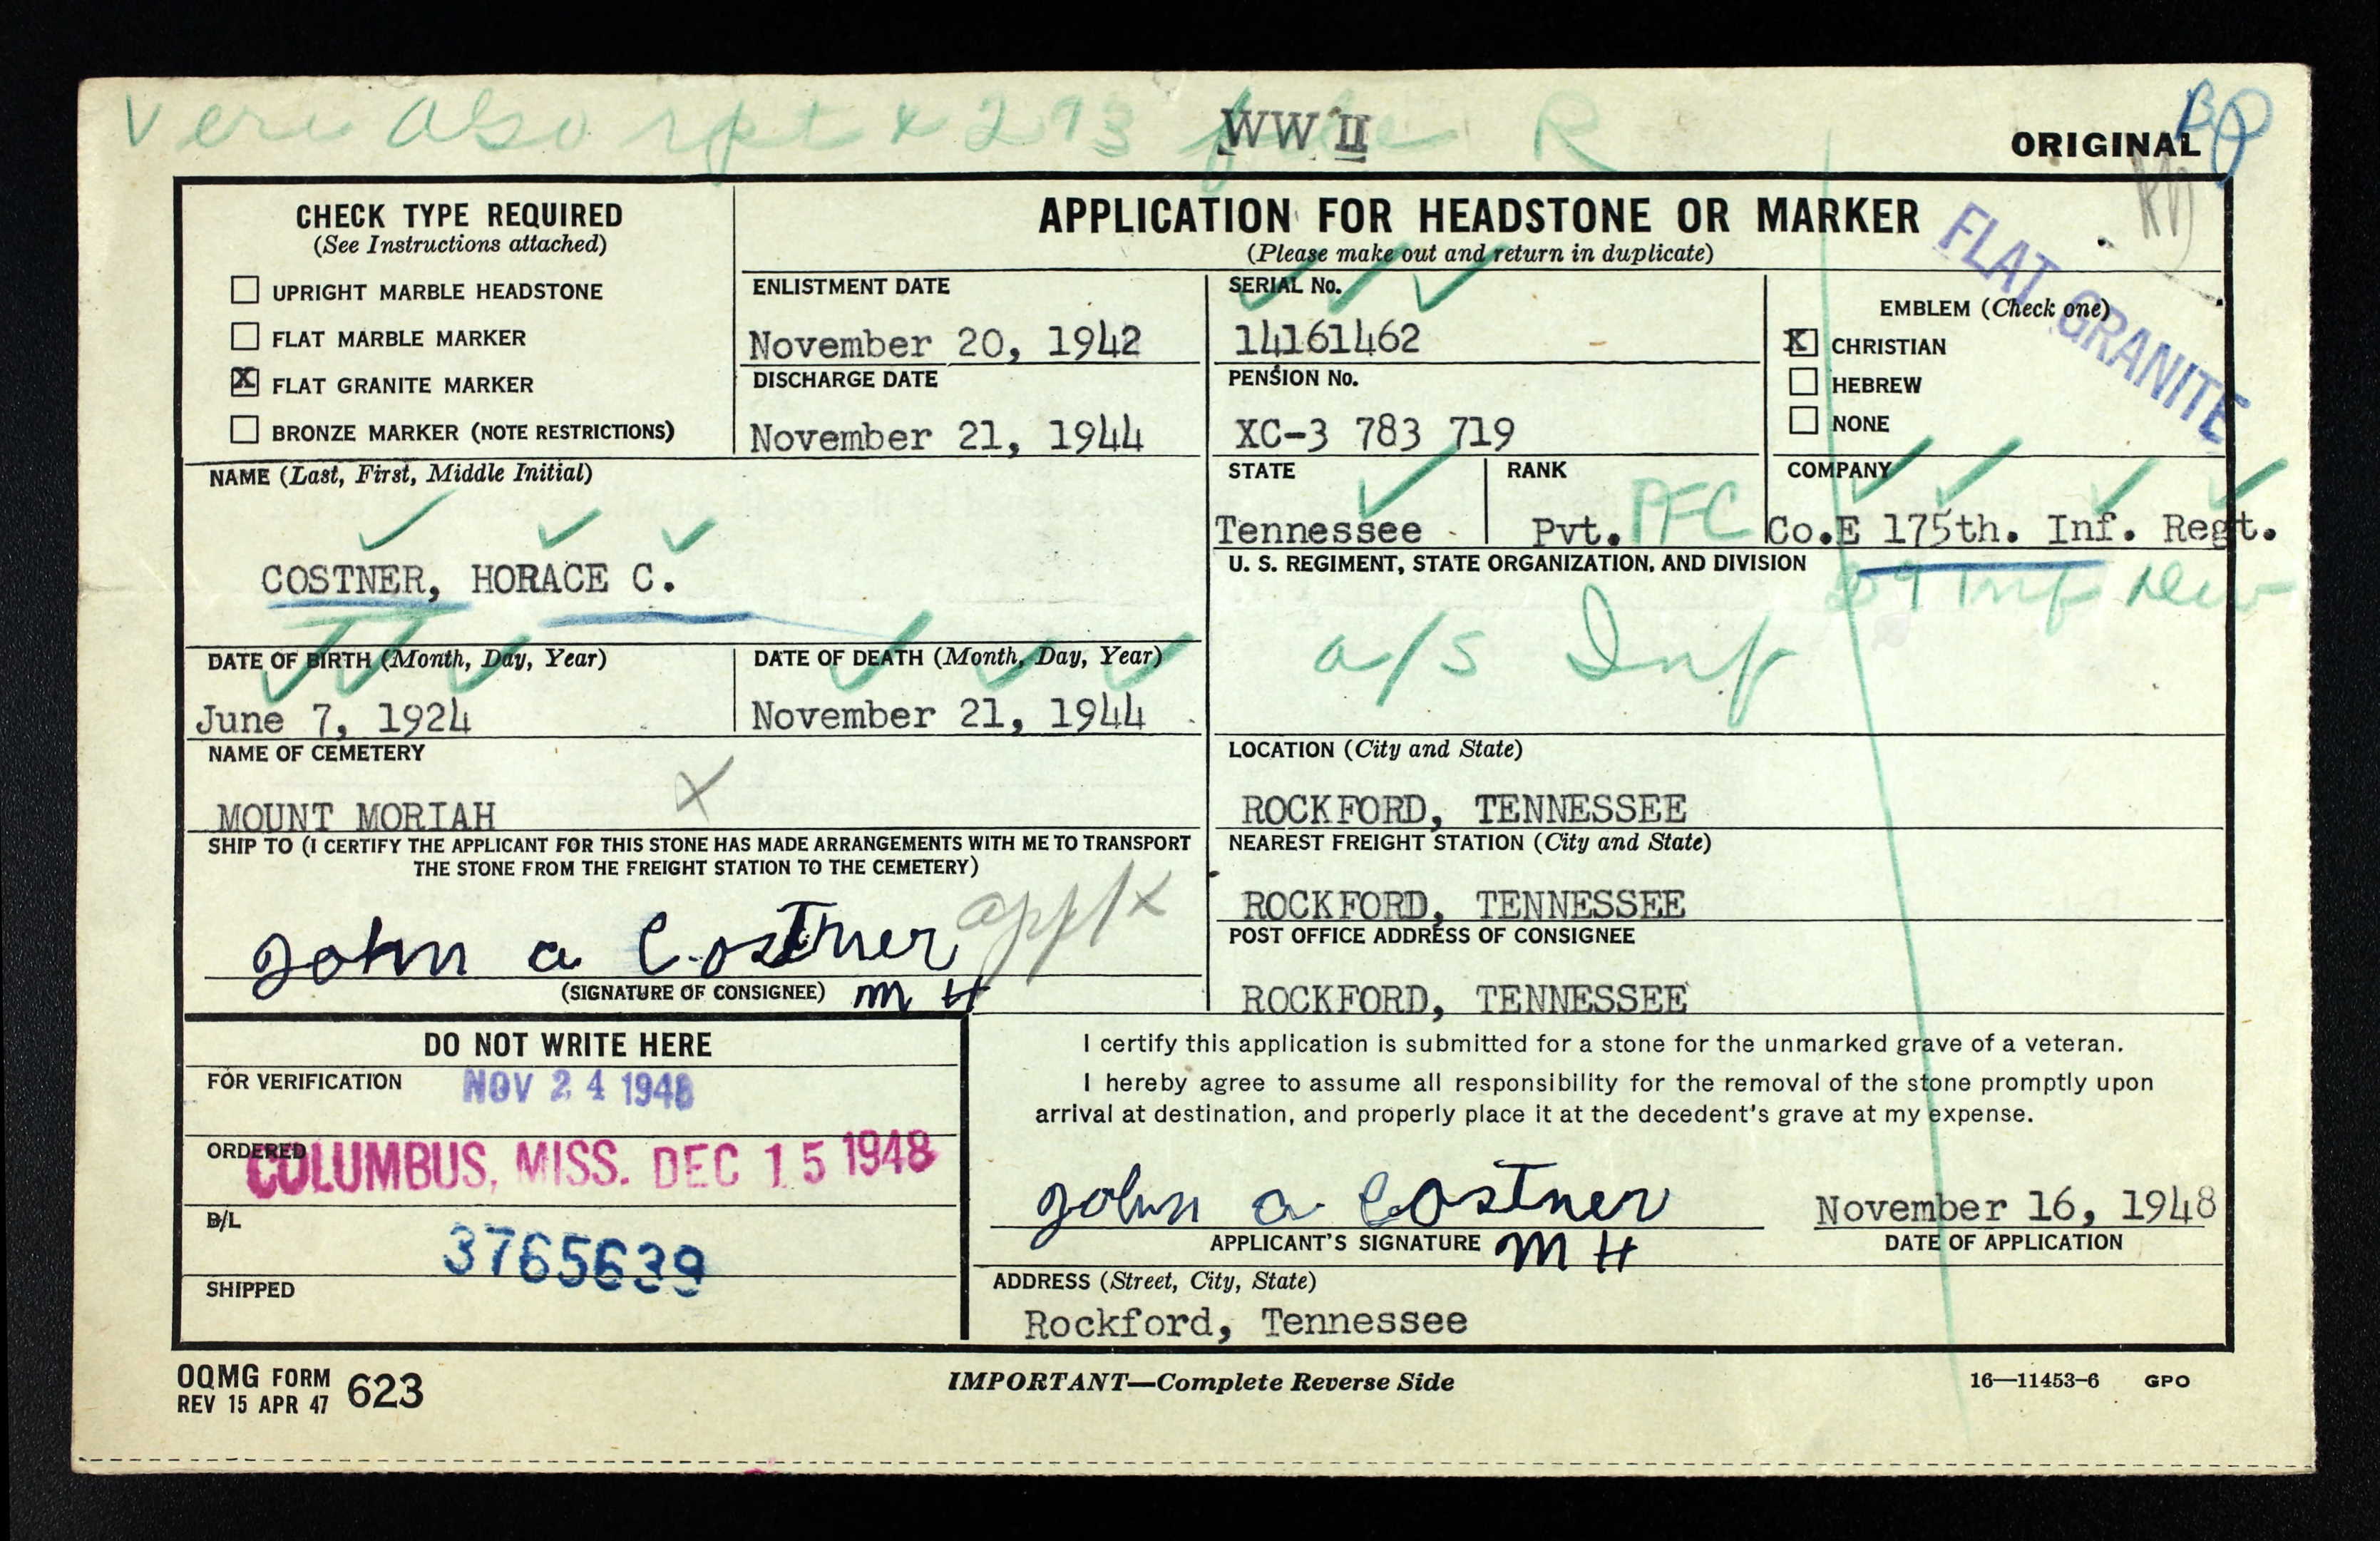 Veri Also rpt & 293 file R
WW II
BP
ORIGINAL
CHECK TYPE REQUIRED
(See Instructions attached)
UPRIGHT MARBLE HEADSTONE
FLAT MARBLE MARKER
X FLAT GRANITE MARKER
BRONZE MARKER (NOTE RESTRICTIONS)
APPLICATION FOR HEADSTONE OR MARKER
(Please make out and return in duplicate)
FLAT GRANITE
ENLISTMENT DATE
November 20, 1942
DISCHARGE DATE
November 21, 1944
SERIAL No.
14161462
PENSION No.
XC-3 783 719
EMBLEM (Check one)
X CHRISTIAN
HEBREW
NONE
NAME (Last, First, Middle Initial)
COSTNER, HORACE C.
STATE
Tennessee
RANK
Pvt. PFC
COMPANY
Co.E 175th. Inf. Regt.
U. S. REGIMENT, STATE ORGANIZATION, AND DIVISION
29 Inf Div
a/s Inf
DATE OF BIRTH (Month, Day, Year)
June 7, 1924
DATE OF DEATH (Month, Day, Year)
November 21, 1944
NAME OF CEMETERY
MOUNT MORIAH X
LOCATION (City and State)
ROCKFORD, TENNESSEE
SHIP TO (I CERTIFY THE APPLICANT FOR THIS STONE HAS MADE ARRANGEMENTS WITH ME TO TRANSPORT
THE STONE FROM THE FREIGHT STATION TO THE CEMETERY)
John a Costner
(SIGNATURE OF CONSIGNEE) M H
NEAREST FREIGHT STATION (City and State)
ROCKFORD, TENNESSEE
POST OFFICE ADDRESS OF CONSIGNEE
ROCKFORD, TENNESSEE
DO NOT WRITE HERE
FOR VERIFICATION NOV 24 1948
ORDERED COLUMBUS, MISS. DEC 15 1948
B/L
3765639
SHIPPED
I certify this application is submitted for a stone for the unmarked grave of a veteran.
I hereby agree to assume all responsibility for the removal of the stone promptly upon
arrival at destination, and properly place it at the decedent's grave at my expense.
John a Costner
APPLICANT'S SIGNATURE M H
November 16, 1948
DATE OF APPLICATION
ADDRESS (Street, City, State)
Rockford, Tennessee
OQMG FORM 623
REV 15 APR 47
IMPORTANT—Complete Reverse Side
16—11453-6 GPO